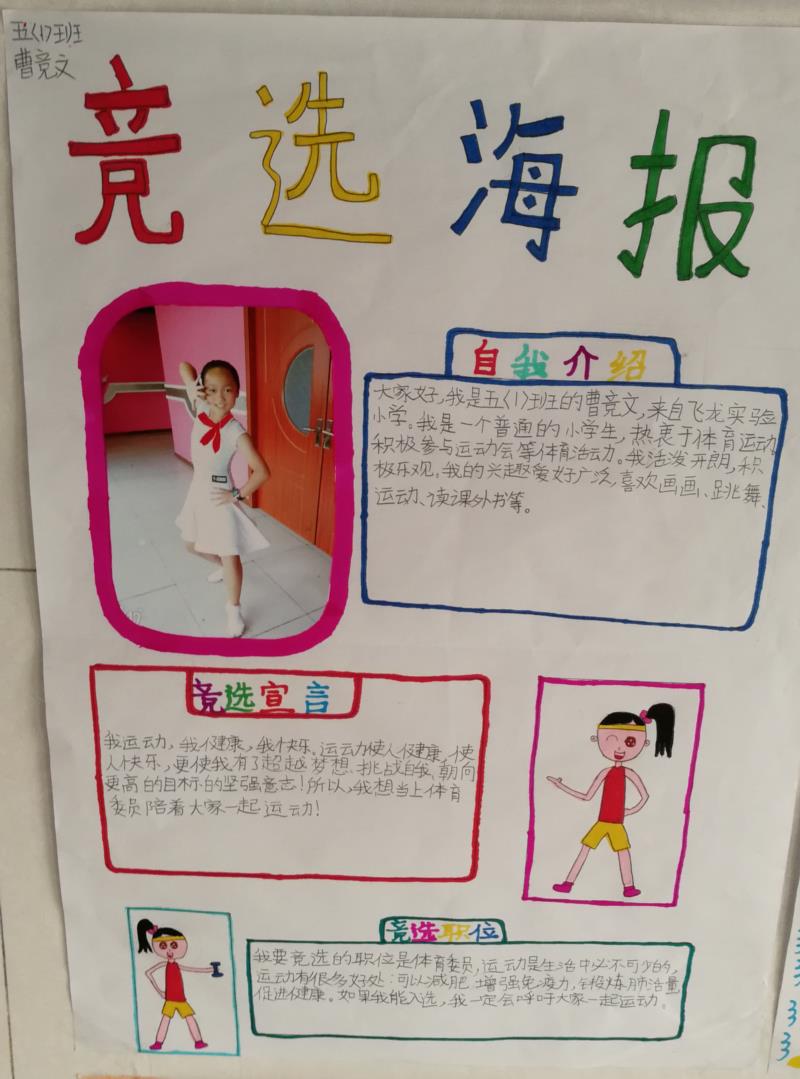 五〈1〉班
曹竞文
竞选海报
自我介绍
大家好,我是五〈1〉班的曹竞文,来自飞龙实验
小学。我是一个普通的小学生,热衷于体育运动,
积极参与运动会等体育活动。我活泼开朗,积
极乐观。我的兴趣爱好广泛,喜欢画画、跳舞、
运动、读课外书等。
竞选宣言
我运动,我健康,我快乐。运动使人健康,使
人快乐,更使我有了超越梦想、挑战自我、朝向
更高的目标的坚强意志!所以,我想当上体育
委员陪着大家一起运动!
竞选职位
我要竞选的职位是体育委员,运动是生活中必不可少的,
运动有很多好处:可以减肥、增强免疫力,锻炼肺活量,
促进健康。如果我能入选,我一定会呼吁大家一起运动。